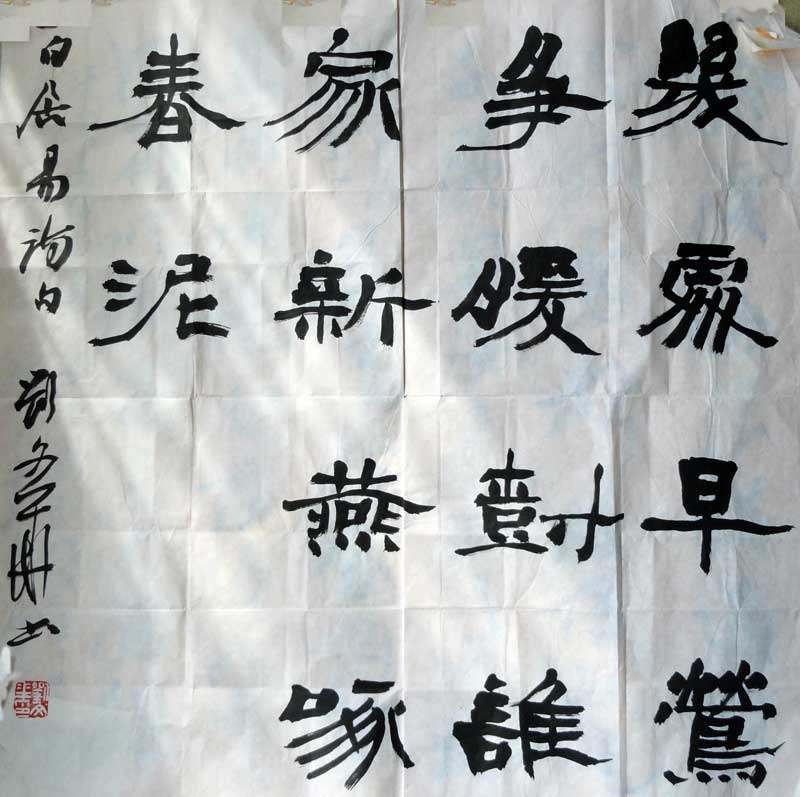 幾處早鶯
争暖樹誰
家新燕啄
春泥
白居易詩句 劉文